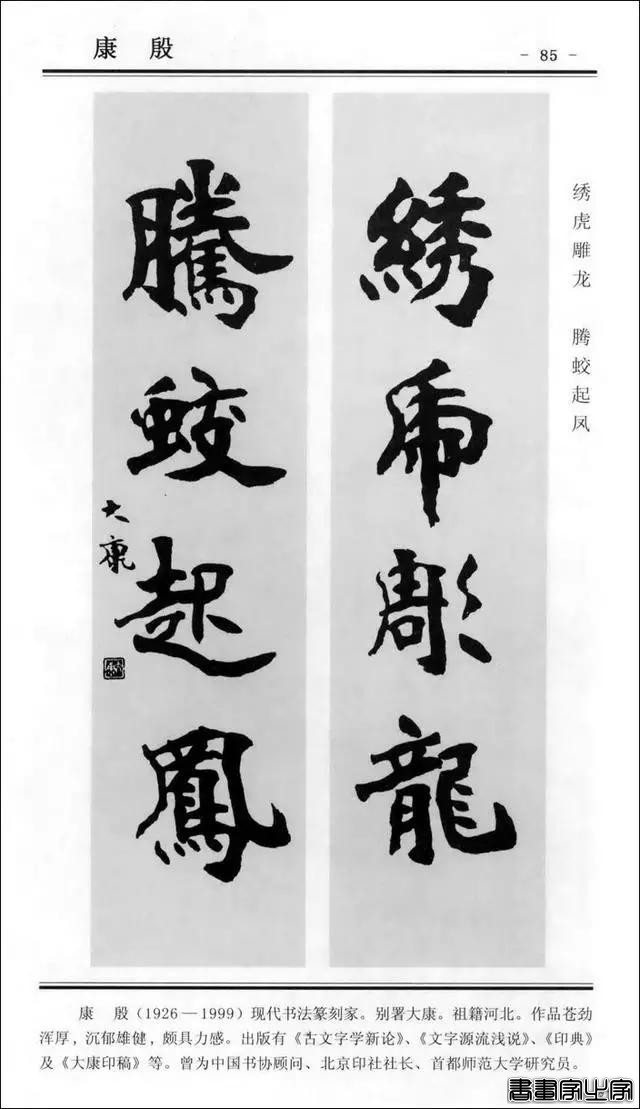 康 殷
- 85 -
绣虎雕龙 腾蛟起凤
繡虎彫龍
騰蛟起鳳
大康
康 殷（1926—1999）现代书法篆刻家。别署大康。祖籍河北。作品苍劲
浑厚，沉郁雄健，颇具力感。出版有《古文字学新论》、《文字源流浅说》、《印典》
及《大康印稿》等。曾为中国书协顾问、北京印社社长、首都师范大学研究员。
書畫家之家